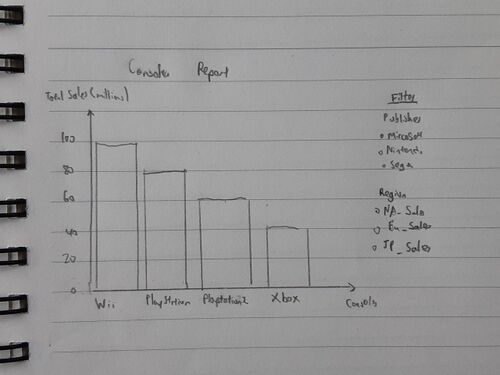 Consoles Report
Total Sales (millions)
100
80
60
40
20
0
Wii PlayStation Playstation2 Xbox
Consoles
Filter
Publisher
Microsoft
Nintendo
Sega
Region
NA_Sales
Eu_Sales
JP_Sales